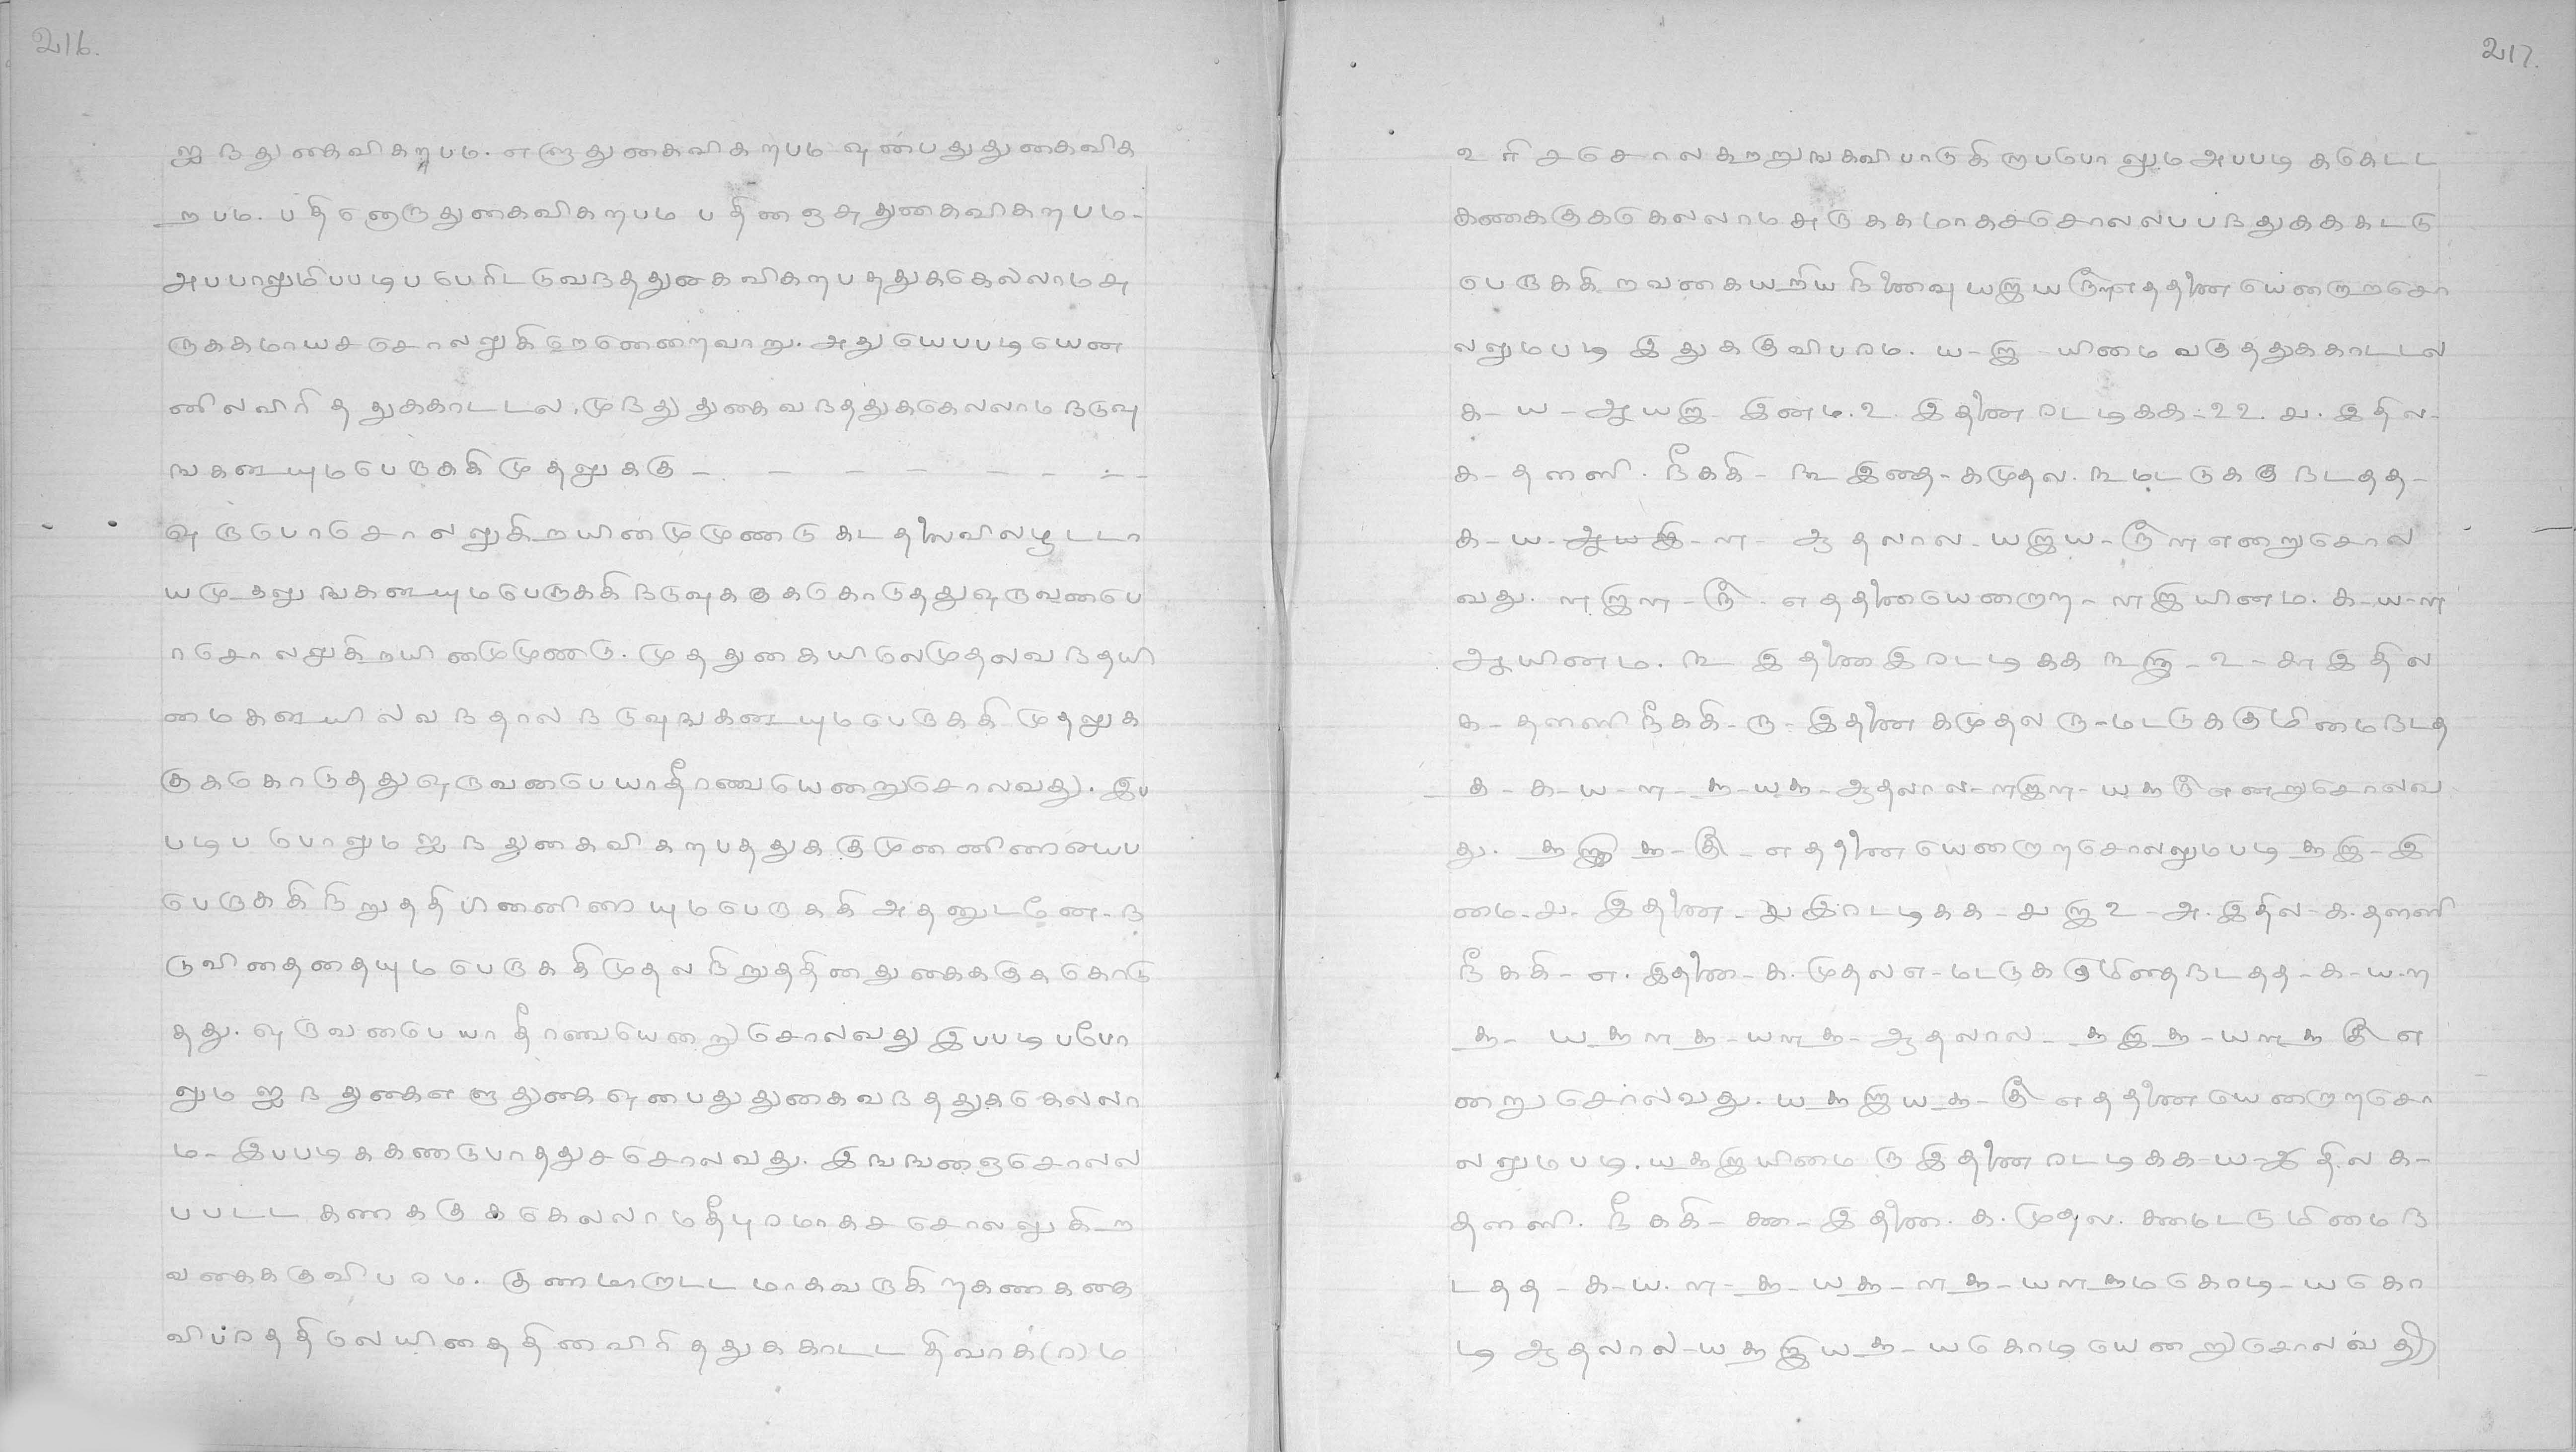 216.
ஐந துகைவிகறபம. எளு துகைவிகறபம ஒன்பது துகைவிக
றபம. பதினொரு துகைவிகறபம பதினஞசு துகைவிகறபம-
அபபாலுமிபபடிப பெரிட டுவநத துகை விகறபததுககெல்லாம சு
ருககமாயச சொலலுகிறெனெறவாறு. அது யெபபடி யென
னில விரித துககாடடல. முநது துகை வநததுககெலலாம நடுவு
ஙகடையும பெருககி முதலுககு - - - - - - - -
ஒருபொ சொலலுகிறயினமுமுணடு கடதலைவிலழடடா
யமுதலுஙகடையுமபெருககி நடுவுககுககொடுதது ஒருவனபெ
ர சொலலுகிறயினமுமுணடு. முத துகையிலெ முதலவநதயி
மைகடையில்வநதால நடுவுஙகடையுமபெருககி முதலுக
குககொடுதது ஒருவனபெயாதீரணயெனறுசொலவது. இப
படிப பொலும ஐநதுகைவிகறபததுககுமுனனிணையைப
பெருககி நிறுததி பினனிணையுமபெருககி அதனுடனே - ந
டுவிதைதையும பெருககி முதல நிறுததின துகைககுக கொடு
தது. ஒருவனபெயாதீரணயெனறு சொலவது இபபடிபபோ
லும ஐந துகை எளு துகை ஒன்பது துகைவநததுககெலலா
ம - இபபடிககணடு பாததுச சொலவது. இஙஙனஞசொலல
பபடட கணககுககெலலாமதீபுரமாகச சொலலுகிற
வகைககுவிபரம. குணமாருடடமாகவருகிறகணககை
விபரததிலெயினதைதினவிரிததுககாடடதிவாக(ர)ம
217.
உரிசசொலகூறறுஙகவிபாடுகிருபபொலும அபபடிககெடட
கணககுககெலலாமசுருககமாகச சொலலபபநதுகககடடு
பெருககிறவகையறியநினைவு யஐயரூள எததனையெனறுறசொ
லலுமபடி இதுககுவிபரம. ய-ஐ -யிமை வகுததுககாடடல
க-ய-ஆயஇ- இனம. ௨. இதனை ரடடிகக-௨௨. ௪. இதில-
க-தளளி. நீககி- ௩ இதை-கமுதல. ௩மடடுககு நடதத-
க-ய-ஆயஇ-ள- ஆதலால-யஐய-ரூள எனறுசொல
வது. ளஐள-ரூ. எததனையெனறுற- ளஇயினம. க-ய-ள
ஆயினம. ௩ இதனை இரடடிகக ௩ஐ-௨-௬ இதில
க-தளளி நீககி-ரு- இதனை கமுதல ரு-மடடுககுமிமைநடத
த-க-ய-ள-௲-ய௲-ஆதலால-ளஐள-ய௲ரூ எனறுசொலவ
து. ௲ஐ௲-ரூ-எததனையெனறுறசொலலுமபடி ௲ஐ-இ
மை-௪-இதனை-௪இரடடிகக-௪ஐ௨-அ. இதில-க. தளளி
நீககி-எ. இதனை-க. முதலஎ-மடடுககுமினதநடதத-க-ய-ள
௲- ய௲ள௲-யள௲-ஆதலால-௲இ௲-யள௲ரூ எ
னறுசொலவது. ய௲ஐய௲-ரூ எததனையெனறுறசொ
லலுமபடி. ய௲ஐயிமை ருஇதனை ரடடிகக-ய-இதில க-
தளளி. நீககி-௯-இதனை. க. முதல. ௯மடடுமிமை ந
டதத-க-ய. ள-௲-ய௲-ள௲-யள௲மகொடி-யகொ
டி ஆதலால்-ய௲ஐய௲-யகொடியெனறுசொலவது)